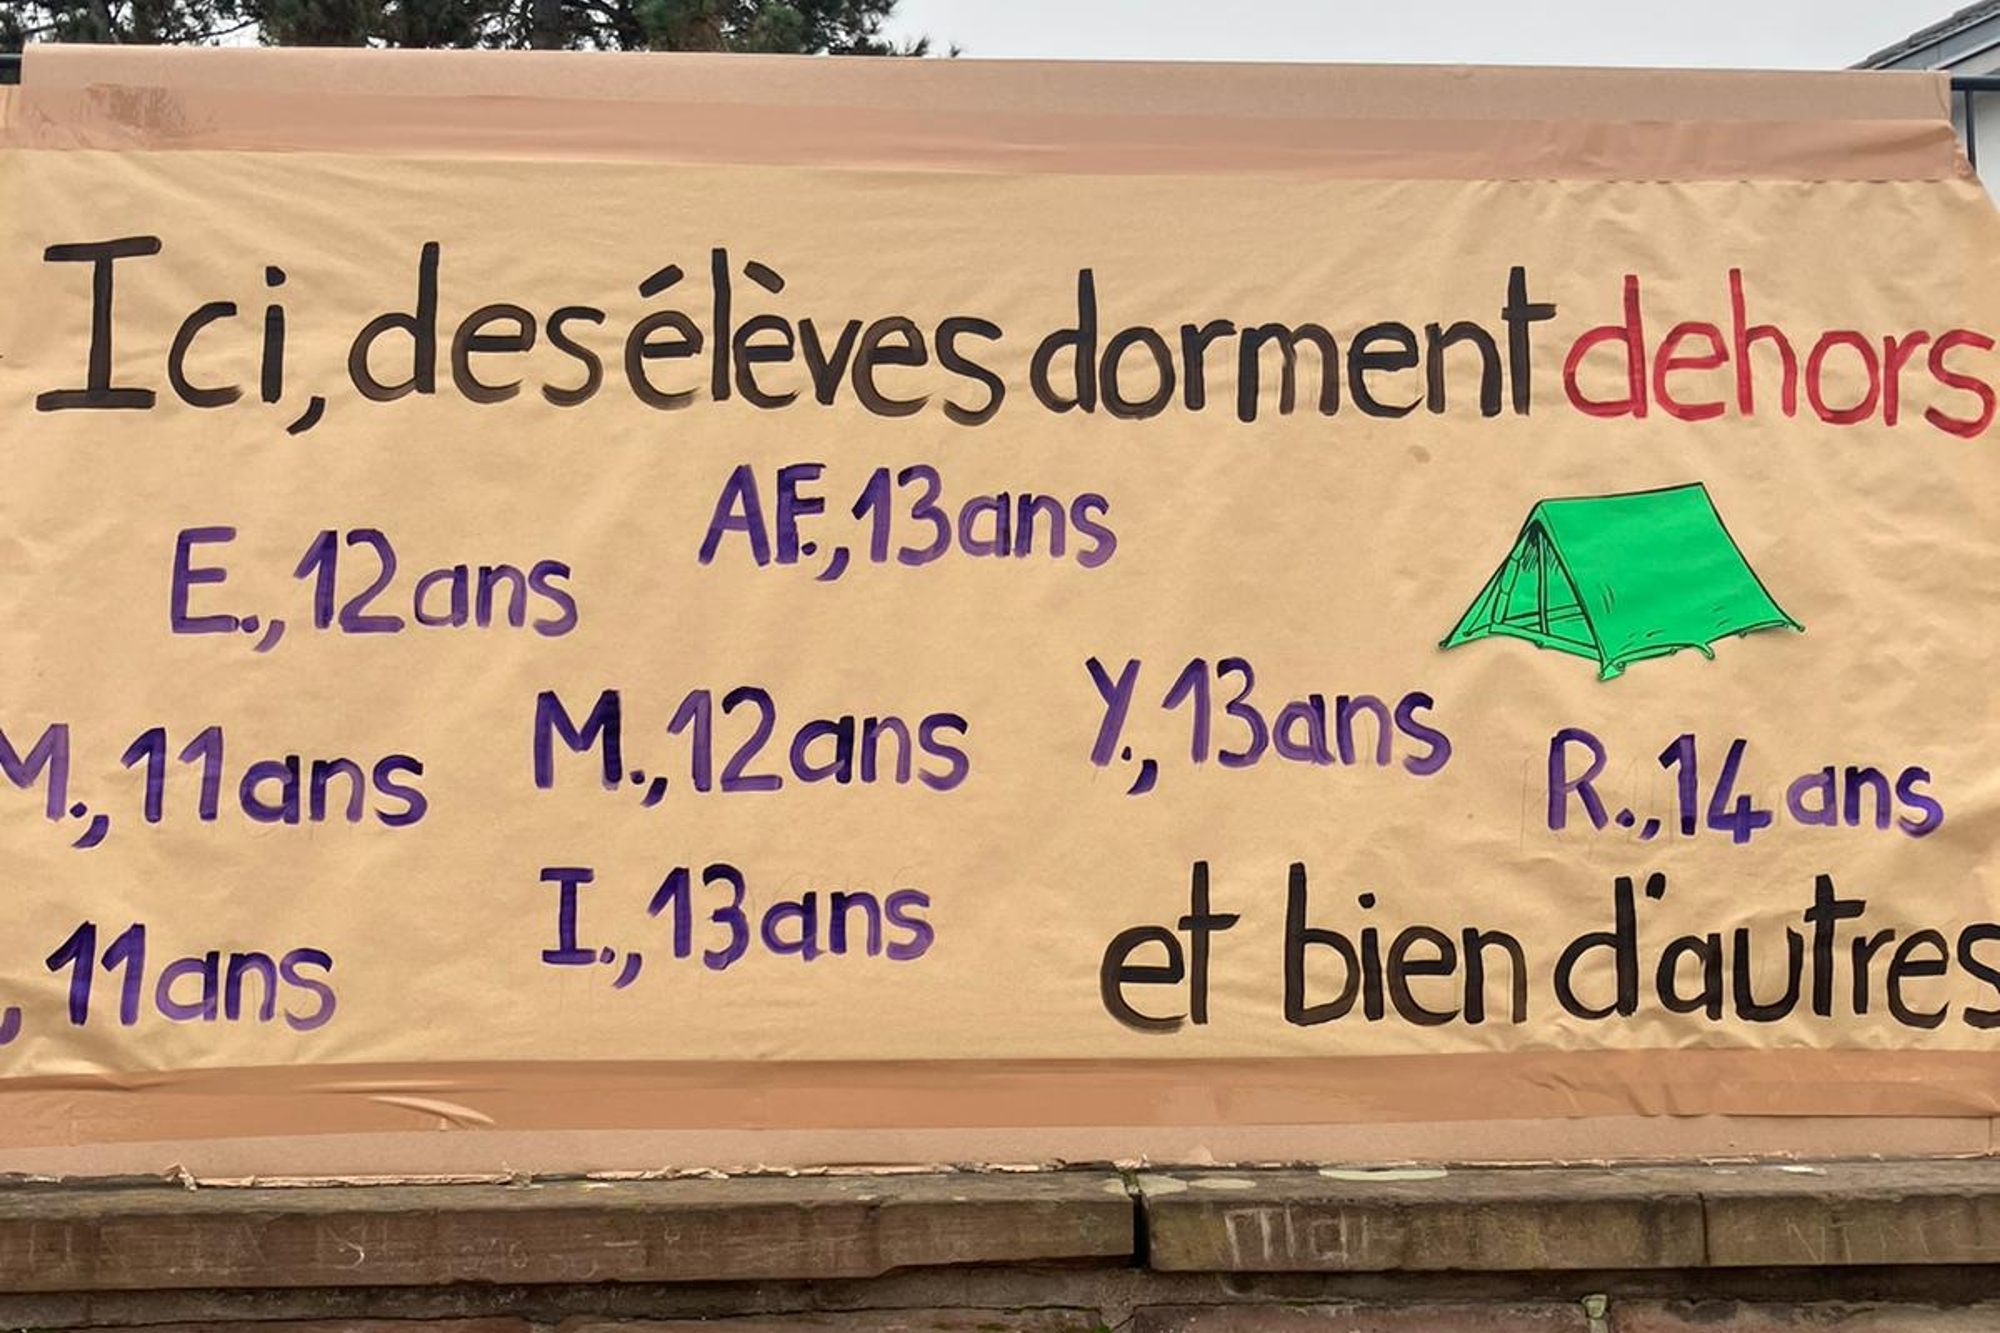 Ici, des élèves dorment dehors
AF., 13 ans
E., 12 ans
Y., 13 ans
M., 12 ans
M., 11 ans
R., 14 ans
I., 13 ans
, 11 ans
et bien d'autres